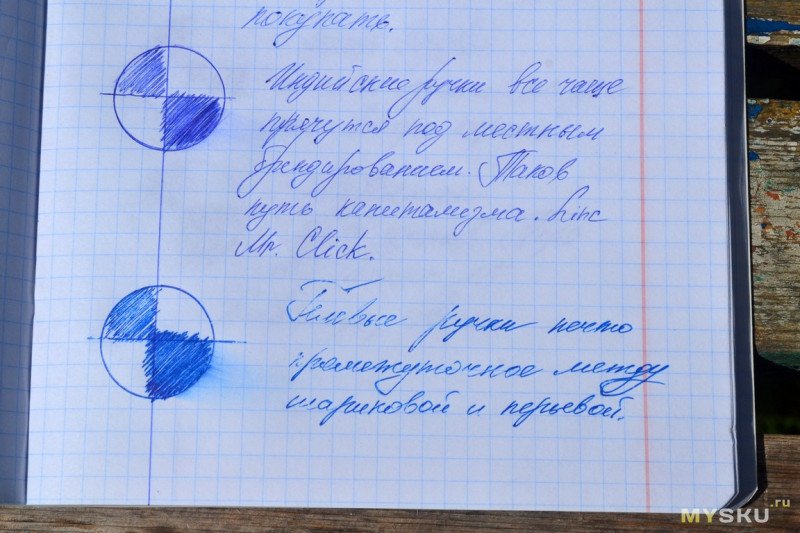 покупать.
Индийские ручки все чаще
прячутся под местным
брендированием. Таков
путь капитализма. Linc
Mr. Click.
Гелевые ручки нечто
промежуточное между
шариковой и перьевой.
MYSKU.ru